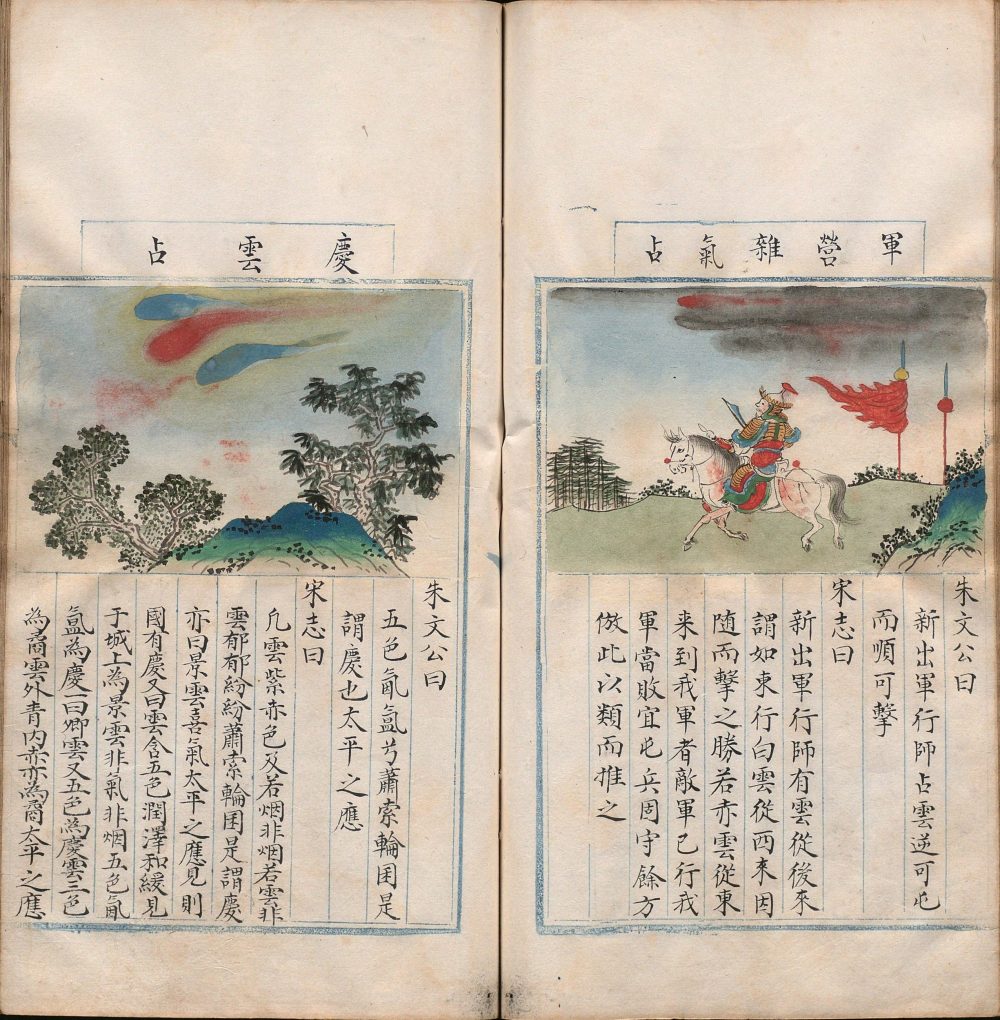 軍營雜氣占
朱文公曰
新出軍行師占雲逆可屯
而順可擊
宋志曰
新出軍行師有雲從後來
謂如東行白雲從西來因
随而擊之勝若赤雲從東
来到我軍者敵軍已行我
軍當敗宜屯兵固守餘方
倣此以類而推之
慶雲占
朱文公曰
五色氤氳兮蕭索輪囷是
謂慶也太平之應
宋志曰
凢雲紫赤色及若烟非烟若雲非
雲郁郁紛紛蕭索輪囷是謂慶
亦曰景雲喜氣太平之應見則
國有慶又曰雲含五色潤澤和緩見
于城上為景雲非氣非烟五色氤
氳為慶一曰卿雲又五色為慶雲三色
為矞雲外青内赤亦為矞太平之應